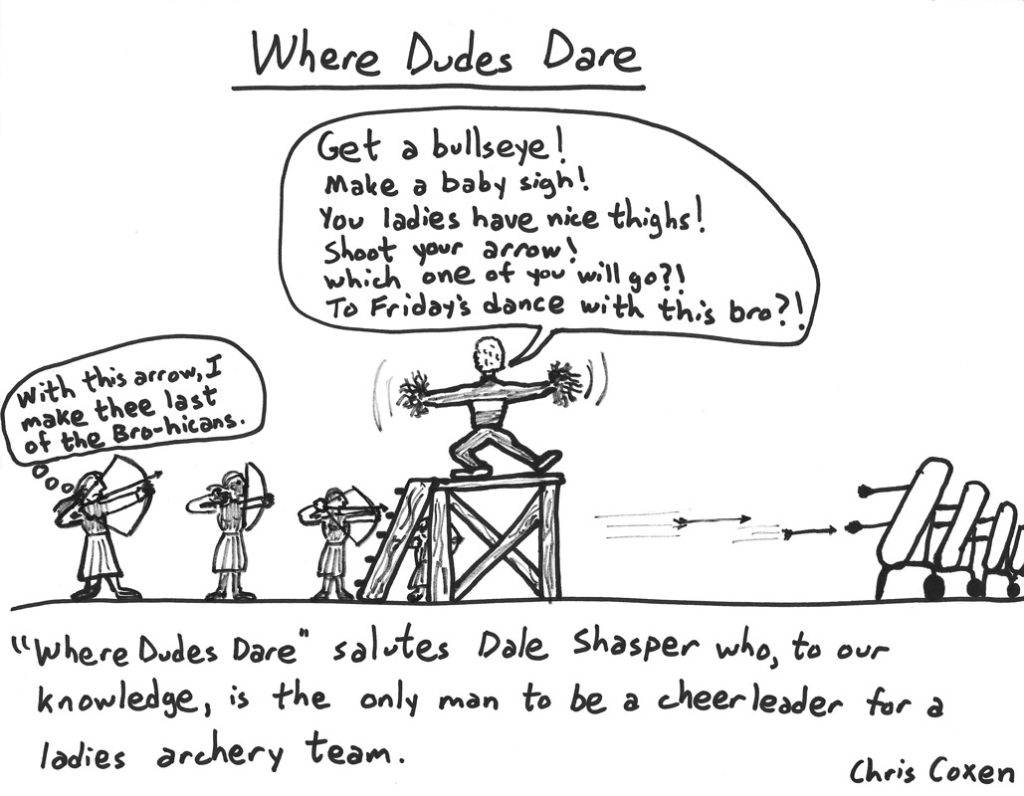 Where Dudes Dare
Get a bullseye!
Make a baby sigh!
You ladies have nice thighs!
Shoot your arrow!
Which one of you will go?!
To Friday's dance with this bro?!
With this arrow, I
make thee last
of the Bro-hicans.
"Where Dudes Dare" salutes Dale Shasper who, to our
knowledge, is the only man to be a cheerleader for a
ladies archery team.
Chris Coxen